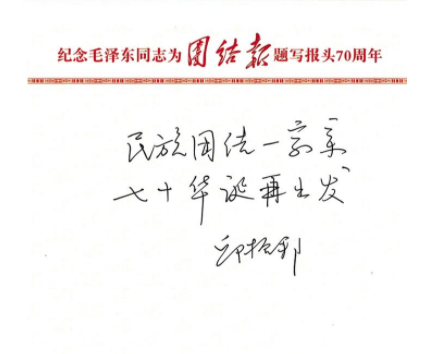 纪念毛泽东同志为团结报题写报头70周年
民族团结一家亲
七十华诞再出发
邱振郢